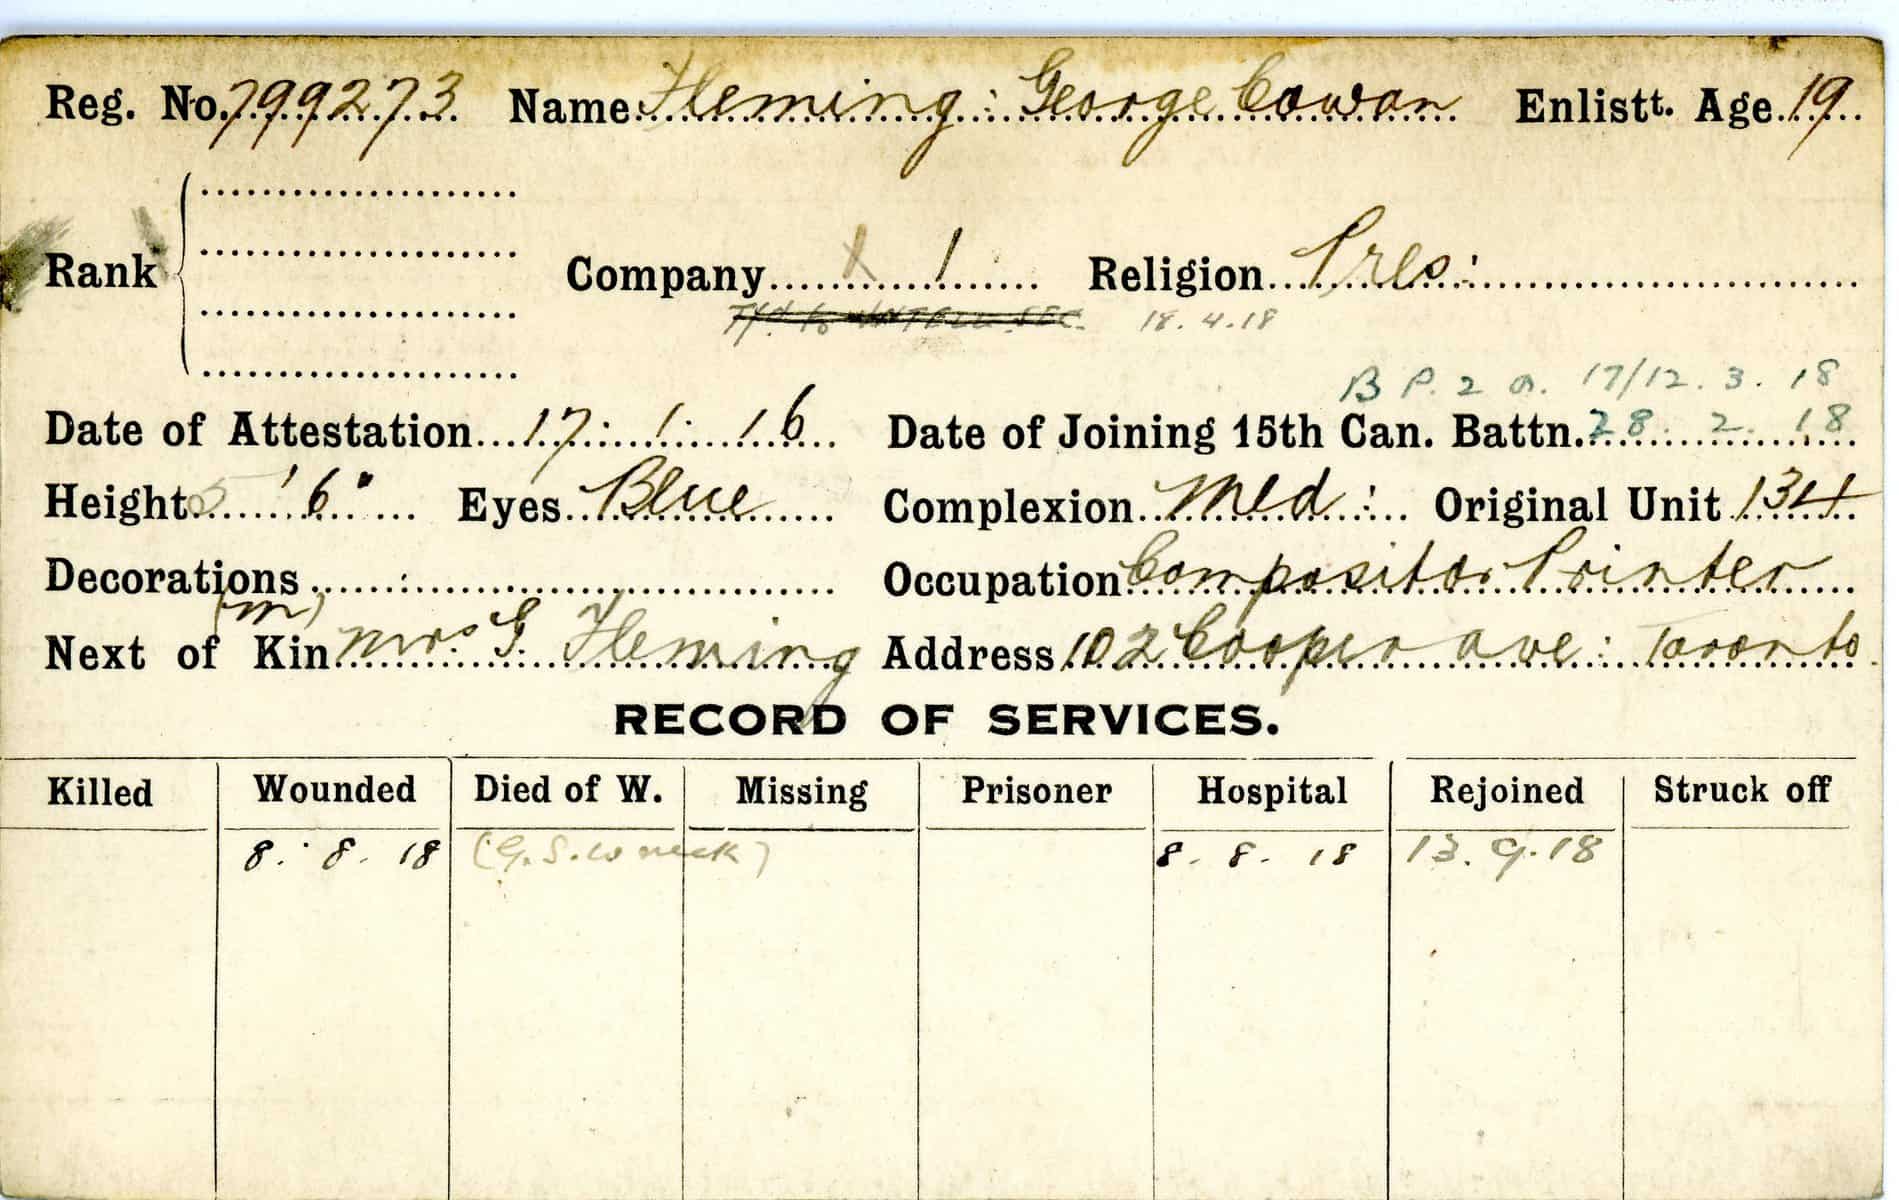 Reg. No. 799273 Name Fleming : George Cowan Enlistt. Age 19
Rank Company 1 Religion Pres :
Tfd to INTELL. SEC. 18.4.18
B P. 2 O. 17/12.3.18
Date of Attestation 17 : 1 : 16 Date of Joining 15th Can. Battn. 28. 2. 18
Height 5' 6" Eyes Blue Complexion Med : Original Unit 134
Decorations : Occupation Compositor Printer
(m)
Next of Kin Mrs G Fleming Address 102 Cooper Ave : Toronto
RECORD OF SERVICES.
Killed Wounded Died of W. Missing Prisoner Hospital Rejoined Struck off
8. 8. 18 (G.S.W neck) 8. 8. 18 13. 9. 18